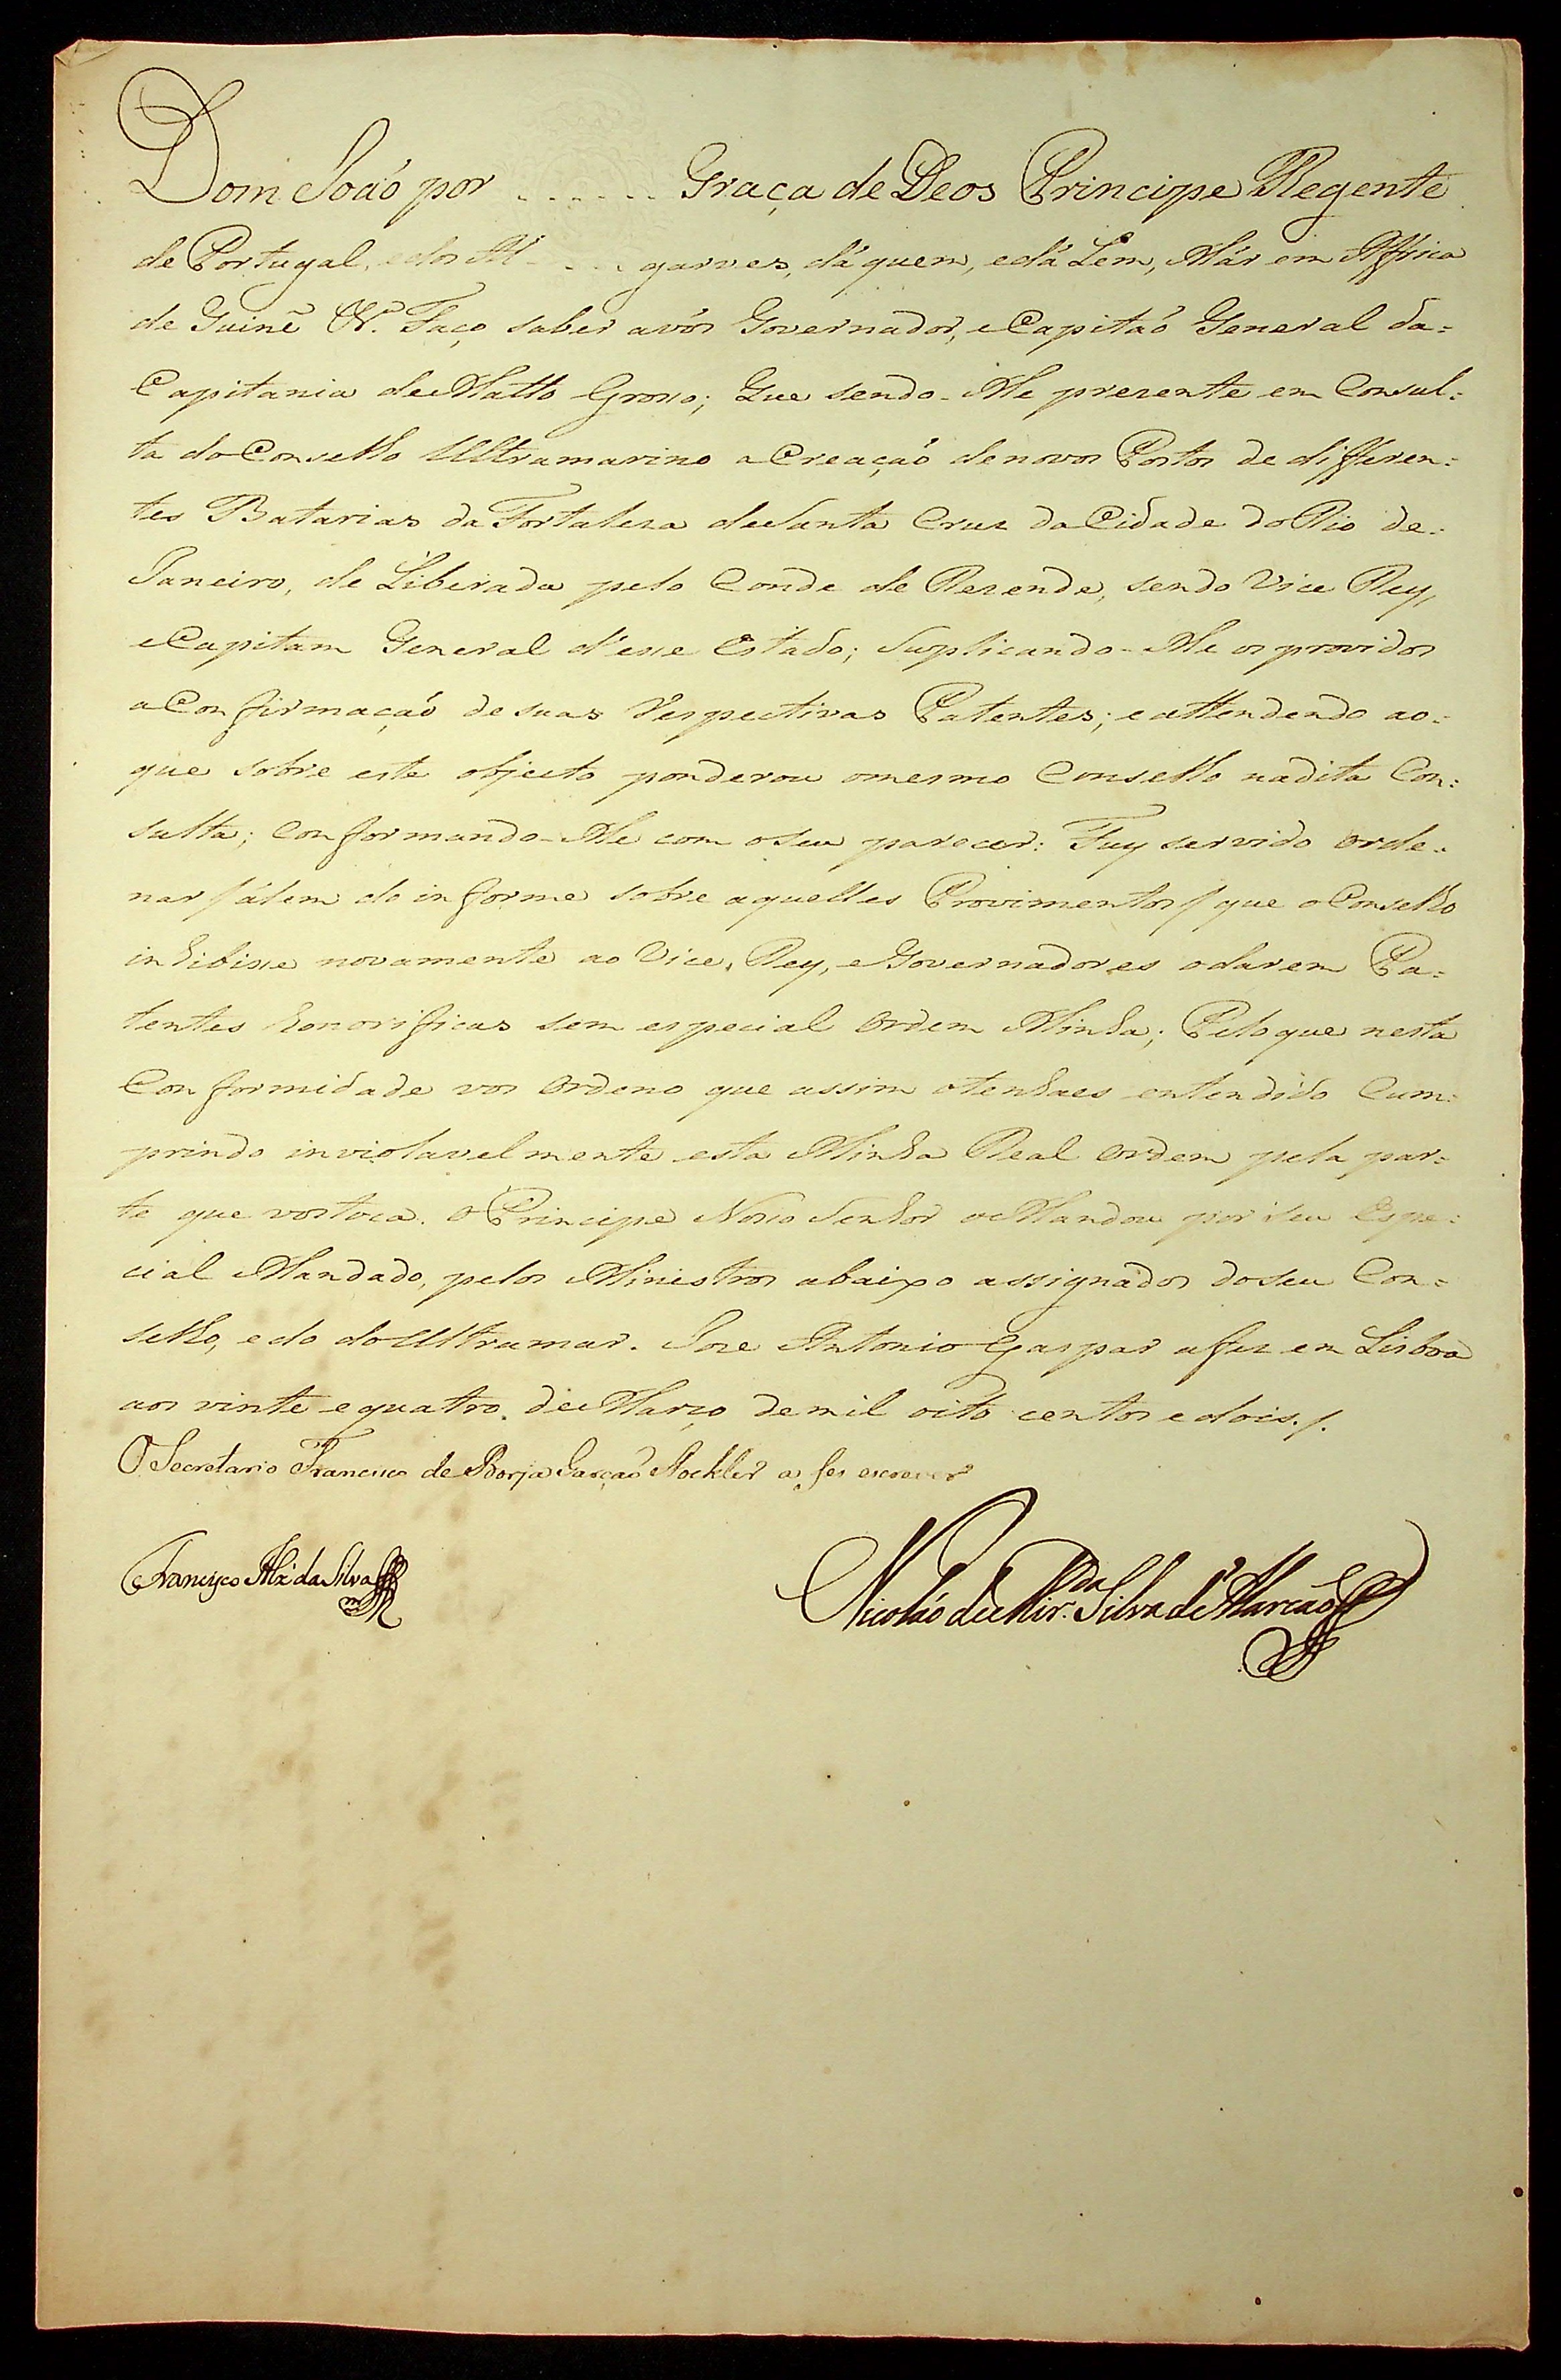 Dom Joaõ por ...... Graça de Deos Principe Regente
de Portugal, e dos Al- ... garves, dáquem, e dá Lem, Már em Affrica
de Guinê &ª. Faço saber avós Governador, e Capitaõ General da=
Capitania de Matto Grosso; Que sendo-Me prezente em Consul=
ta do Conselho Ultramarino a Creaçaõ de novos Postos de differen=
tes Batarias da Fortaleza de Santa Cruz da Cidade do Rio de=
Janeiro, de Liberada pelo Conde de Rezende, sendo Vice Rey,
e Capitam General d'esse Estado; Suplicando-Me os providos
a Confirmaçaõ de suas Respectivas Patentes; e attendendo ao=
que sobre este objecto ponderou o mesmo Conselho na dita Con=
sulta; Conformando-Me com o seu parecer: Fuy servido orde=
nar / álem do informe sobre aquelles Provimentos / que o Conselho
inhibisse novamente ao Vice, Rey, e Governadores o darem Pa=
tentes honorificas sem especial Ordem Minha; Pelo que nesta
Conformidade vos Ordeno que assim o tenhaes entendido Cum=
prindo inviolavelmente esta Minha Real Ordem pela par=
te que vos toca. O Principe Nosso Senhor o Mandou por seu Espe=
cial Mandado, pelos Ministros abaixo assignados do seu Con=
selho, e do do Ultramar. Joze Antonio Gaspar a fez em Lisboa
aos vinte e quatro de Março de mil oito centos e dois./.
O Secretario Francisco de Borja Garçaõ Stockler a fes escrever
Francisco da Silva
Nicoláo de Mir.da Silva d'Alarcaõ